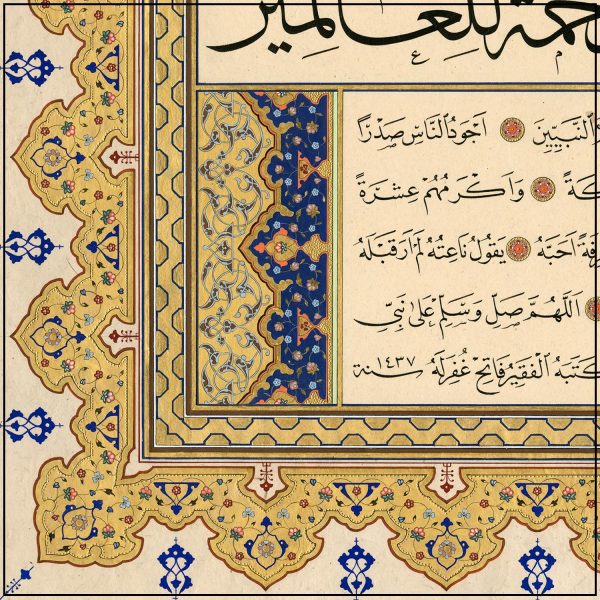 رحمة للعالمين
النَّبِيِّينَ اَجْوَدُ النَّاسِ صَدْرًا
وَاَكْرَمُهُمْ عِشْرَةً
اَحَبَّهُ يَقُولُ نَاعِتُهُ لَمْ اَرَ قَبْلَهُ
اَللّٰهُمَّ صَلِّ وَسَلِّمْ عَلٰى نَبِيِّ
كَتَبَهُ الْفَقِيرُ فَاتِحْ غُفِرَ لَهُ سنة ١٤٣٧